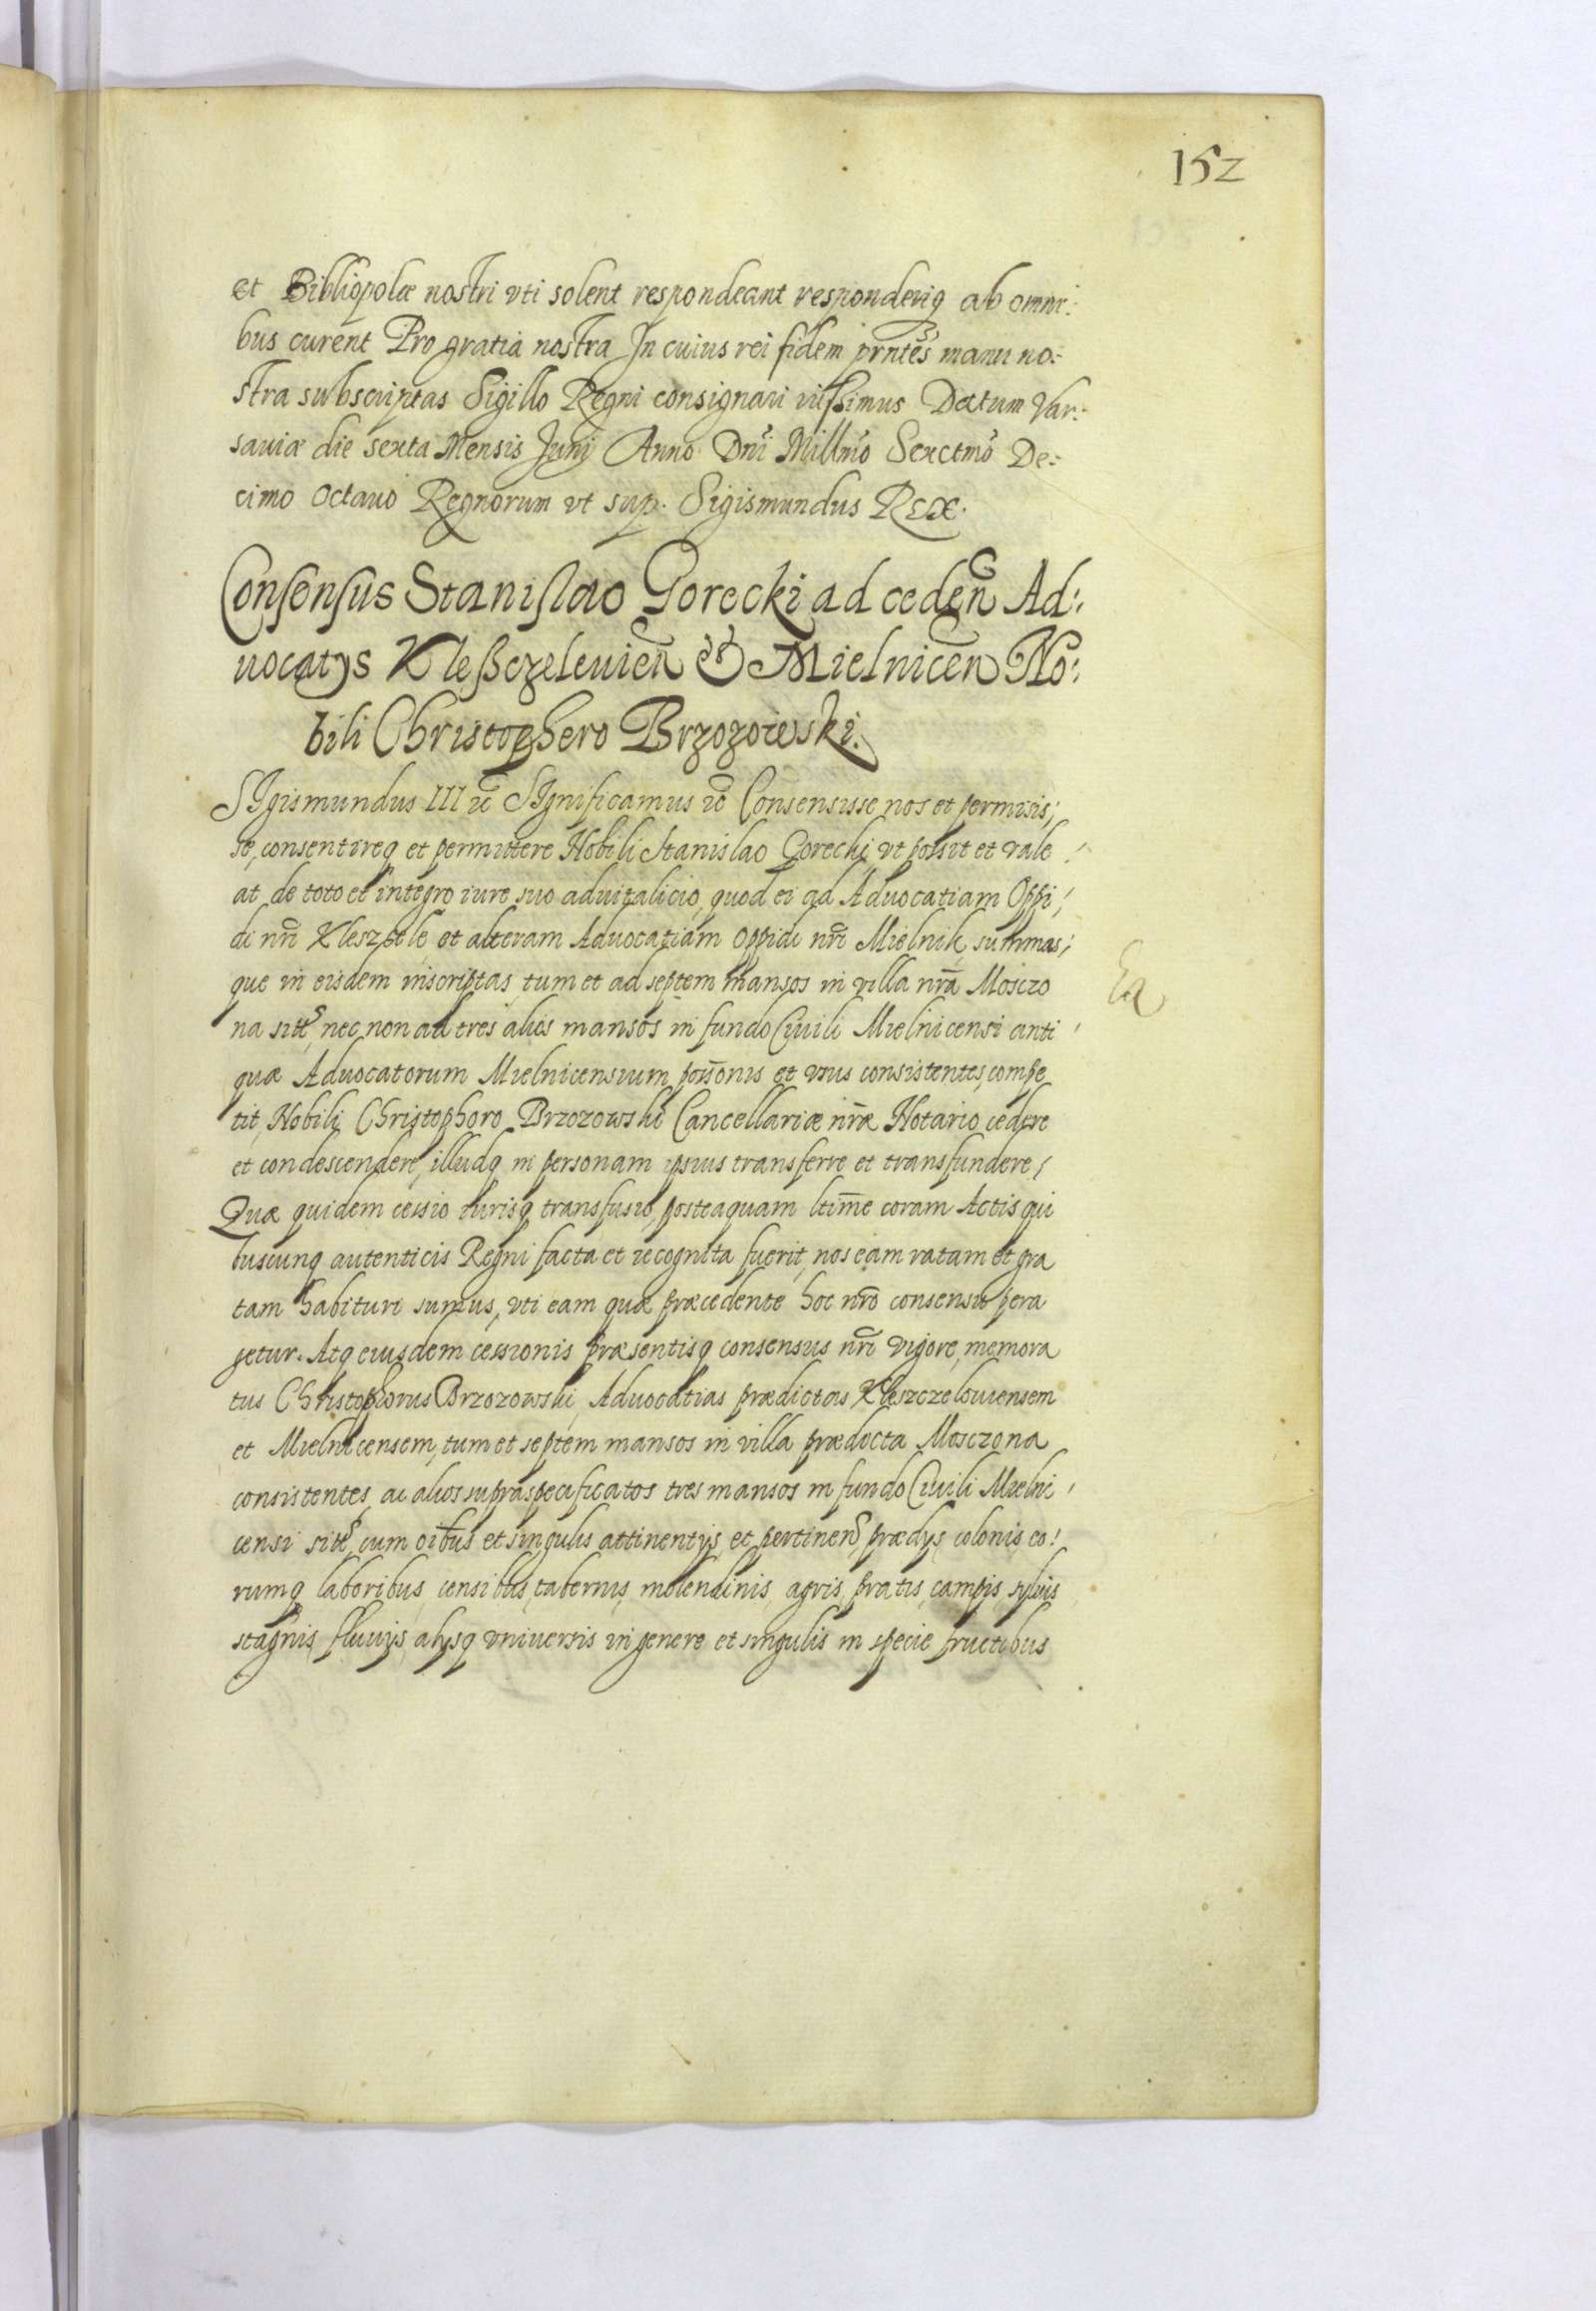 152
et Bibliopolæ nostri vti solent respondeant responderiq ab omni:
bus curent Pro gratia nostra In cuius rei fidem prntes manu no:
stra subscriptas Sigillo Regni consignari iussimus Datum Var:
saviæ die sexta Mensis Junij Anno Dni Millmo Sexctmo De:
cimo Octauo Regnorum vt sup. Sigismundus Rex.
Consensus Stanislao Gorecki ad ceden Ad:
uocatÿs Kleßczelevien & Mielnicen No:
bili Christophero Brzozowski.
SIgismundus III ec SIgnificamus ec Consensisse nos et permisis;
se, consentireq et permittere Nobili Stanislao Gorecki, vt possit et vale
at de toto et integro iure suo aduitalicio, quod ei ad Aduocatiam Oppi;
di nri Kleszcele, et alteram Aduocatiam Oppidi nri Mielnik, summas;
que in eisdem inscriptas, tum et ad septem mansos in villa nra Mosczo
na sitt, nec non ad tres alios mansos in fundo Ciuili Mielnicensi anti
quæ Aduocatorum Mielnicensium possonis et vsus consistentes, compe
tit, Nobili Christophoro Brzozowski Cancellariæ nræ Notario cedere
et condescendere, illudq in personam ipsius transferre et transfundere,
Quæ quidem cessio iurisq transfusio, posteaquam ltime coram Actis qui
buscunq autenticis Regni facta et recognita fuerit, nos eam ratam et gra
tam habituri sumus, vti eam quæ præcedente hoc nro consensu pera
getur. Atq eiusdem cessionis præsentisq consensus nri vigore, memora
tus Christophorus Brzozowski, Aduocatias prædictas Kleszczelouiensem
et Mielnicensem, tum et septem mansos in villa prædicta Mosczona
consistentes, ac alios supraspecificatos tres mansos in fundo Ciuili Mielni
censi sitt, cum oibus et singulis attinentÿs et pertinen, prædÿs, colonis, eo
rumq laboribus, censibus, tabernis, molendinis, agris, pratis, campis, syluis
stagnis, fluuÿs, alÿsq vniuersis in genere et singulis in specie fructibus